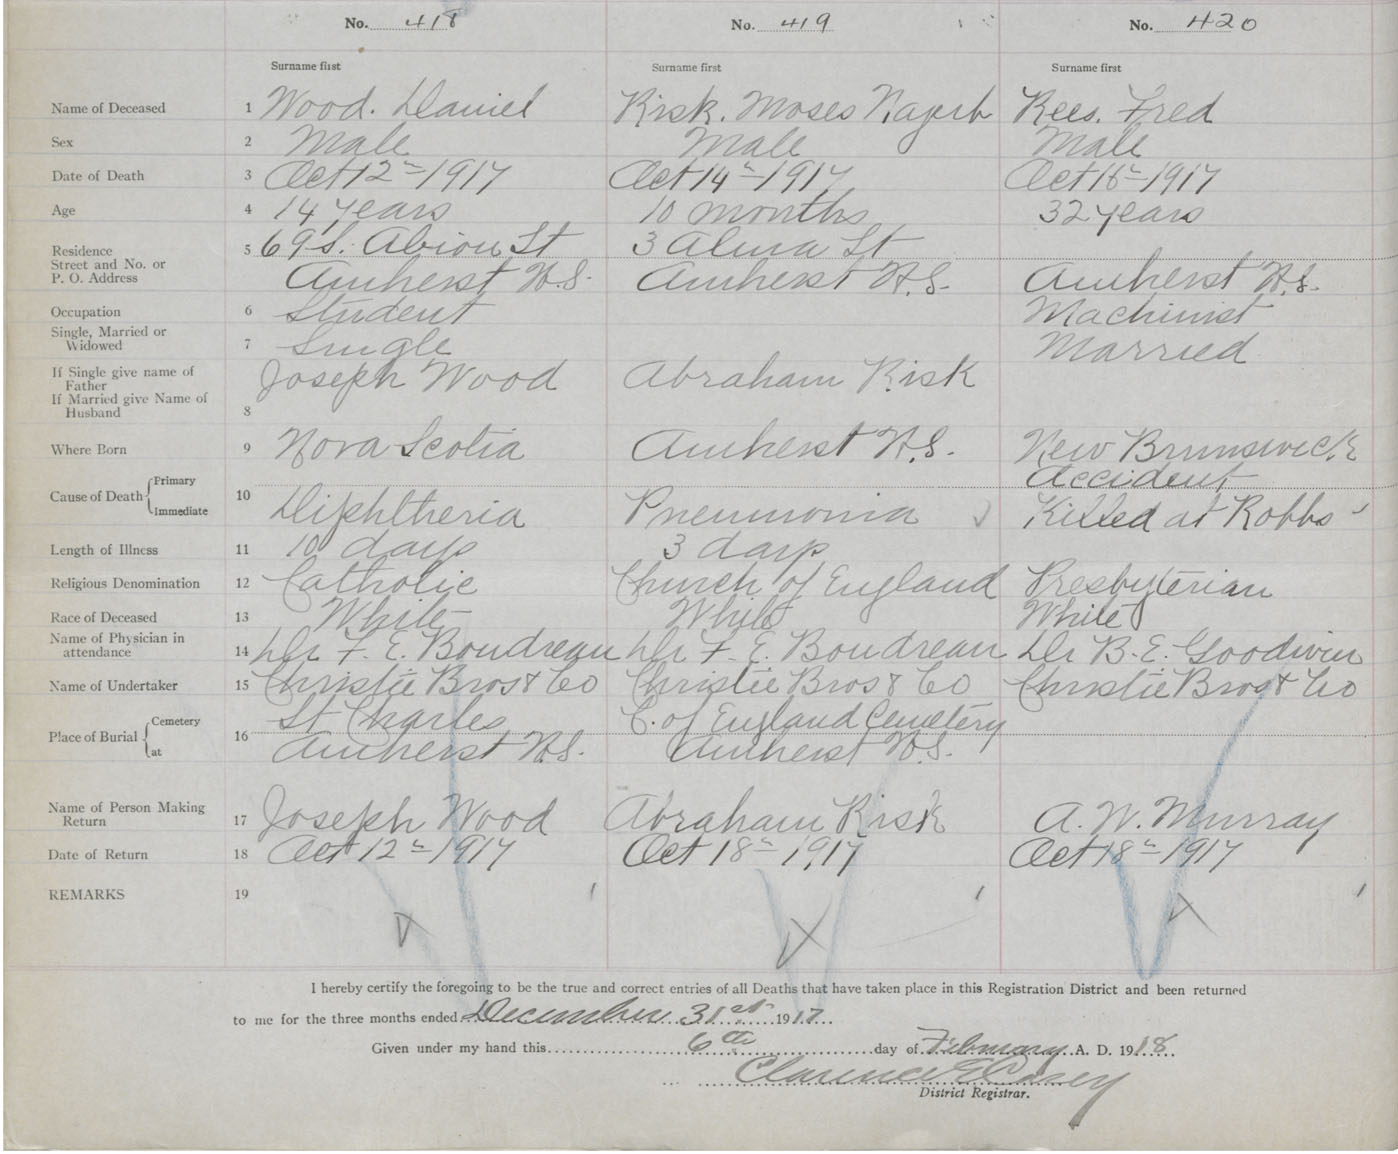 No. 418 No. 419 No. 420
Surname first Surname first Surname first
Name of Deceased 1 Wood. Daniel Risk. Moses Rees. Fred
Sex 2 Male Male Male
Date of Death 3 Oct 12th 1917 Oct 14th 1917 Oct 16th 1917
Age 4 14 years 10 months 32 years
Residence 5 69 S. Albion St 3 Alma St
Street and No. or
P. O. Address Amherst N.S. Amherst N.S. Amherst N.S.
Occupation 6 Student Machinist
Single, Married or
Widowed 7 Single Married
If Single give name of
Father Joseph Wood Abraham Risk
If Married give Name of
Husband 8
Where Born 9 Nova Scotia Amherst N.S. New Brunswick
Cause of Death Primary Accident
10
Immediate Diphtheria Pneumonia Killed at Robbs
Length of Illness 11 10 days 3 days
Religious Denomination 12 Catholic Church of England Presbyterian
Race of Deceased 13 White White White
Name of Physician in
attendance 14 Dr F. E. Boudreau Dr F. E. Boudreau Dr B. E. Goodwin
Name of Undertaker 15 Christie Bros & Co Christie Bros & Co Christie Bros & Co
Place of Burial Cemetery St Charles C. of England Cemetery
16
at Amherst N.S. Amherst N.S.
Name of Person Making
Return 17 Joseph Wood Abraham Risk A. W. Murray
Date of Return 18 Oct 12th 1917 Oct 18th 1917 Oct 18th 1917
REMARKS 19
I hereby certify the foregoing to be the true and correct entries of all Deaths that have taken place in this Registration District and been returned
to me for the three months ended December 31st 1917
Given under my hand this 6th day of February A. D. 1918
Clarence E Casey
District Registrar.